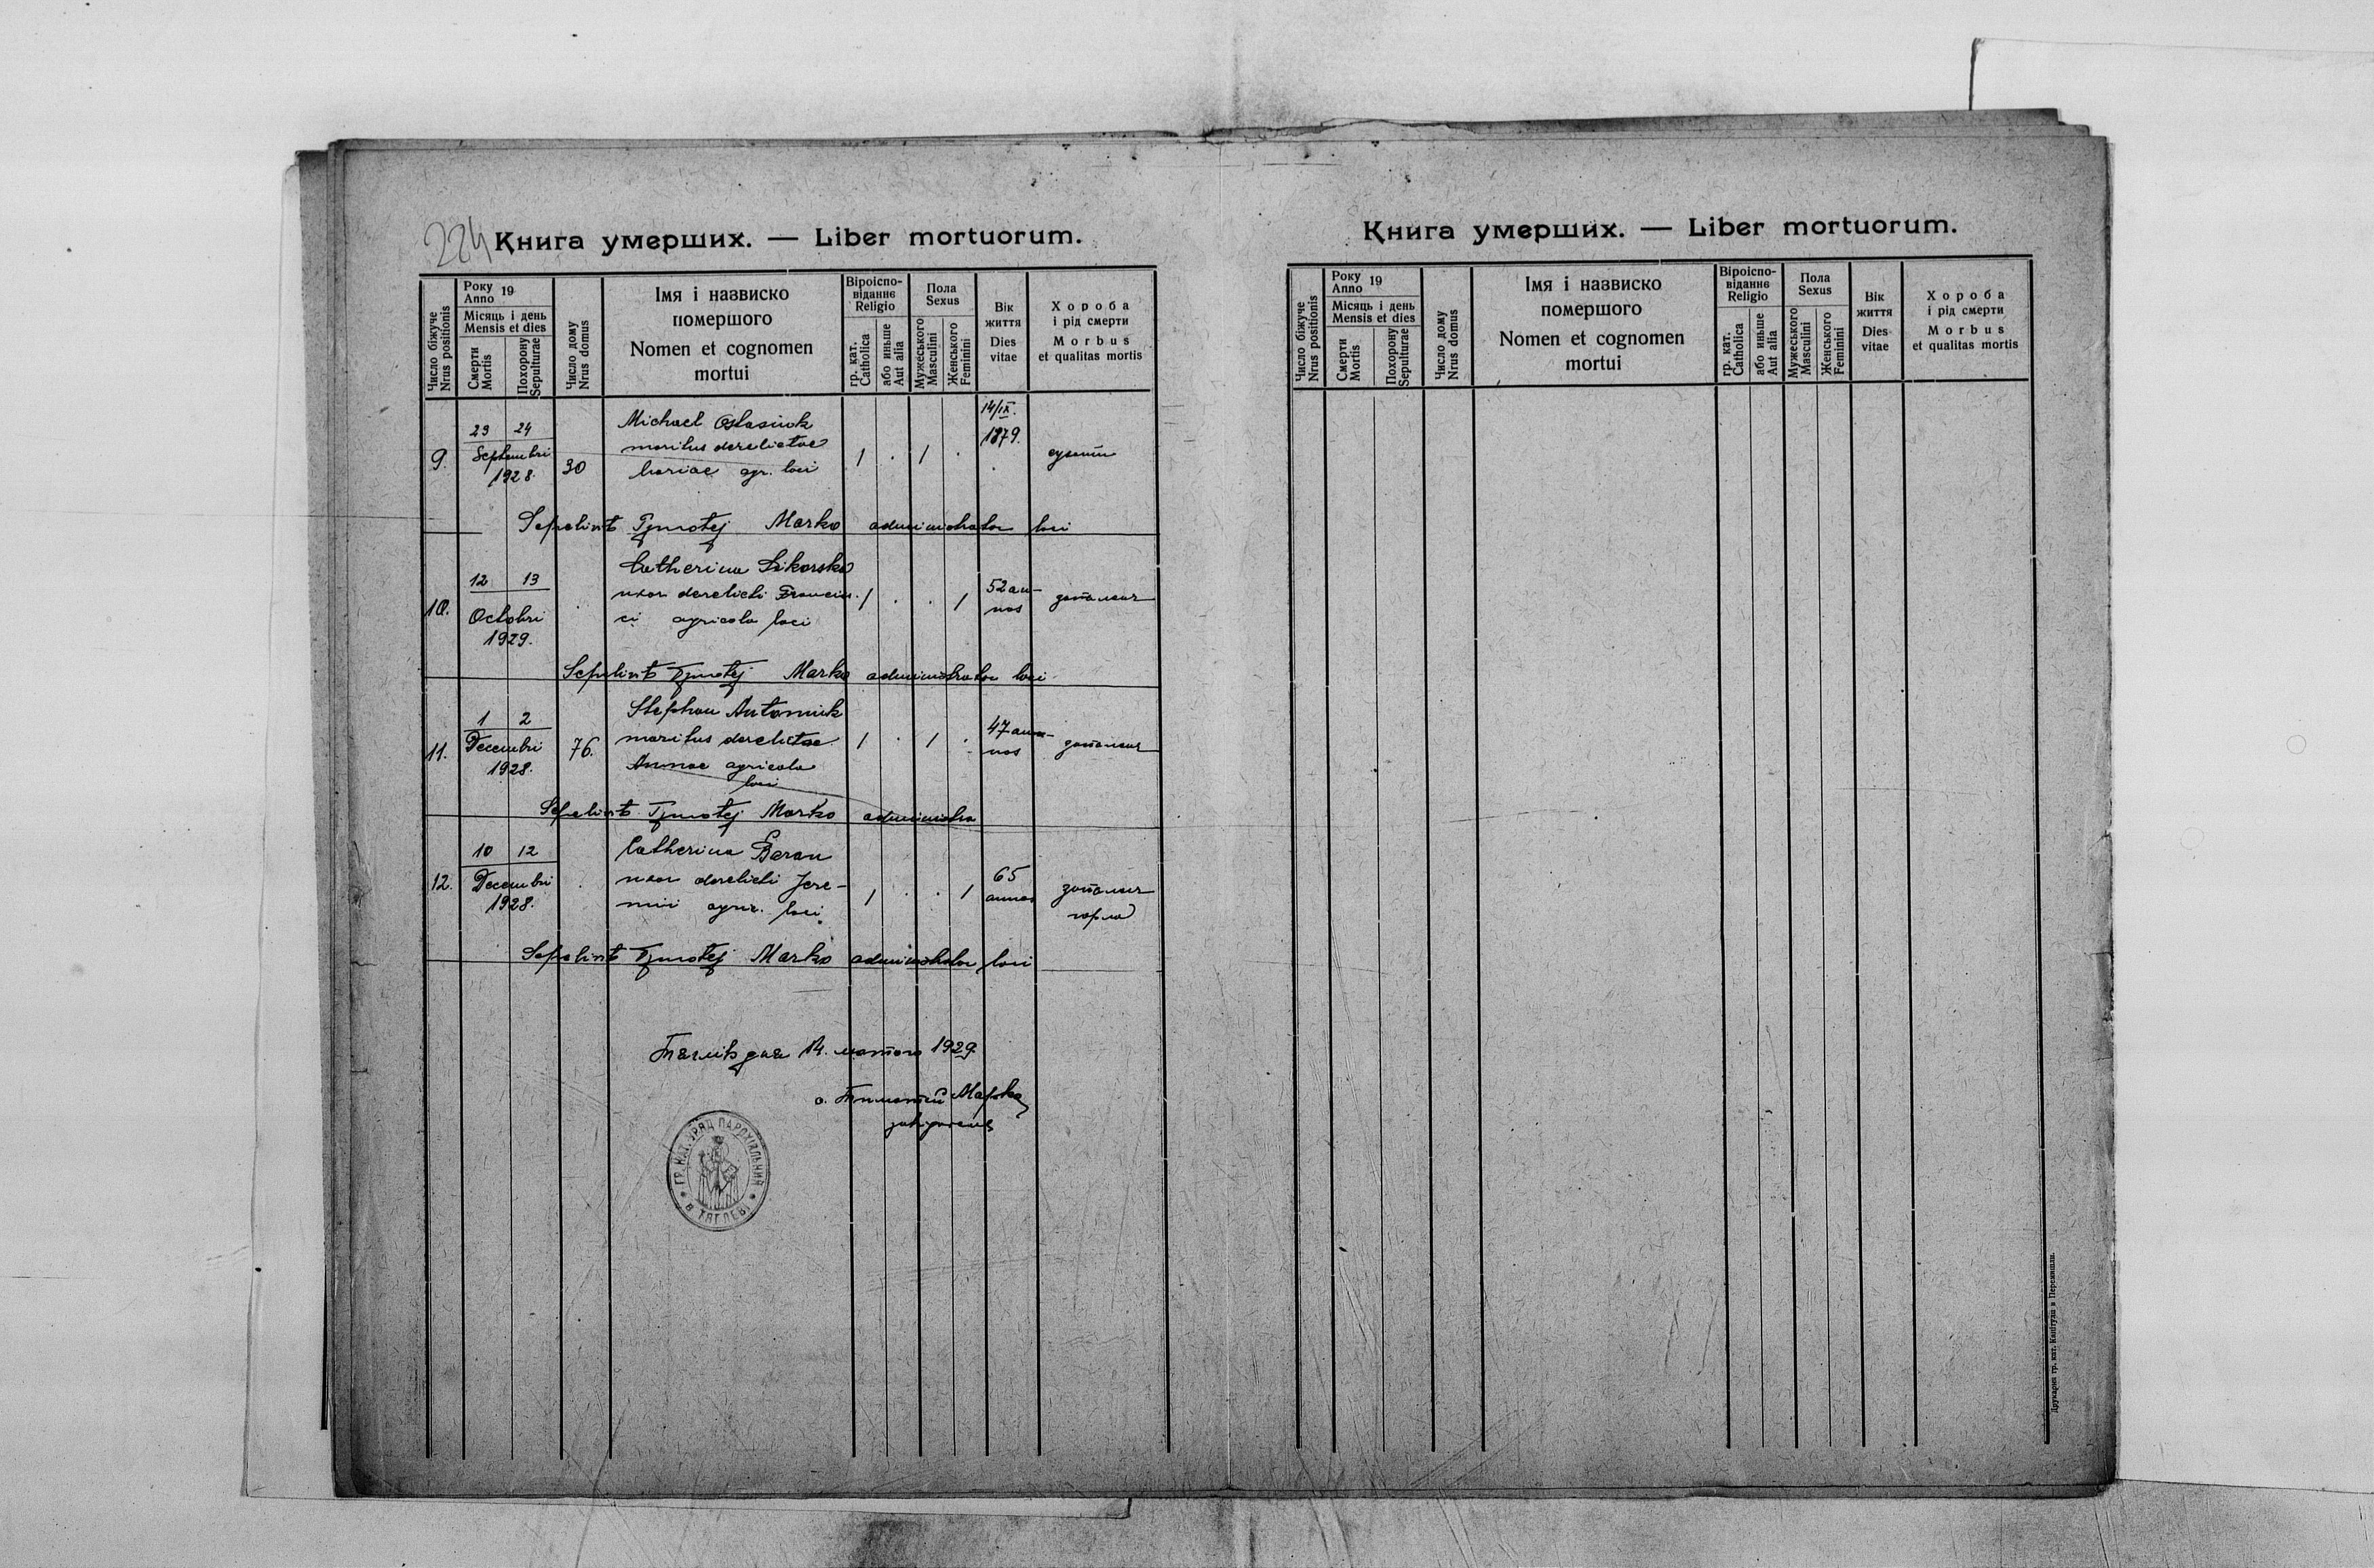 224
Книга умерших. — Liber mortuorum.
Число біжуче
Nrus positionis
Року 19
Anno
Місяць і день
Mensis et dies
Смерти
Mortis
Похорону
Sepulturae
Число дому
Nrus domus
Імя і назвиско
помершого
Nomen et cognomen
mortui
Віроіспо-
віданнє
Religio
гр. кат.
Catholica
або иньше
Aut alia
Пола
Sexus
Мужеського
Masculini
Женського
Feminini
Вік
життя
Dies
vitae
Хороба
і рід смерти
Morbus
et qualitas mortis
9.
23 24
Septembri
1928.
30
Michael Ostasiuk
maritus derelictae
Mariae agr. loci
1 . 1 .
14/IX.
1879.
сухоти
Sepelivit Tymotej Marko administrator loci
10.
12 13
Octobri
1929.
Catherina Sikorska
uxor derelicti Francis-
ci agricola loci
1 . . 1
52 an-
nos
запаленя
Sepelivit Tymotej Marko administrator loci
11.
1 2
Decembri
1928.
76.
Stephan Antoniuk
maritus derelictae
Annae agricola
loci
1 . 1 .
47 ann-
nos
запаленя
Sepelivit Tymotej Marko administra
12.
10 12
Decembri
1928.
Catherina Baran
uxor derelicti Jere-
mii agric. loci
1 . . 1
65
annos
запаленя
горла
Sepelivit Tymotej Marko administrator loci
Тяглів дня 14. лютого 1929.
о. Тимотей Марко
завідатель
ГР. КАТ. УРЯД ПАРОХІЯЛЬНИЙ
В ТЯГЛЕВІ
Книга умерших. — Liber mortuorum.
Число біжуче
Nrus positionis
Року 19
Anno
Місяць і день
Mensis et dies
Смерти
Mortis
Похорону
Sepulturae
Число дому
Nrus domus
Імя і назвиско
помершого
Nomen et cognomen
mortui
Віроіспо-
віданнє
Religio
гр. кат.
Catholica
або иньше
Aut alia
Пола
Sexus
Мужеського
Masculini
Женського
Feminini
Вік
життя
Dies
vitae
Хороба
і рід смерти
Morbus
et qualitas mortis
Друкарня гр. кат. Капітули в Перемишли.